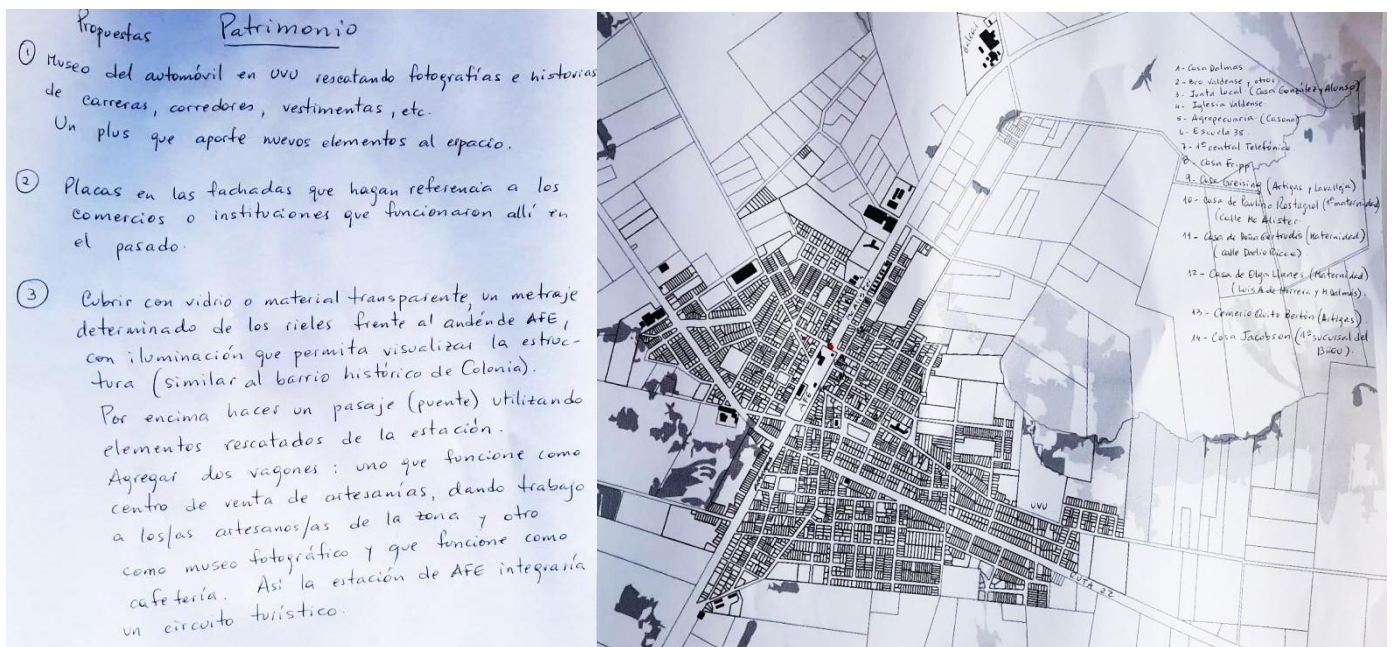 Propuestas Patrimonio
① Museo del automóvil en UVU rescatando fotografías e historias
de carreras, corredores, vestimentas, etc.
Un plus que aporte nuevos elementos al espacio.
② Placas en las fachadas que hagan referencia a los
comercios o instituciones que funcionaron allí en
el pasado.
③ Cubrir con vidrio o material transparente, un metraje
determinado de los rieles frente al andénde AFE,
con iluminación que permita visualizar la estruc-
tura (similar al barrio histórico de Colonia).
Por encima hacer un pasaje (puente) utilizando
elementos rescatados de la estación.
Agregar dos vagones: uno que funcione como
centro de venta de artesanías, dando trabajo
a los/as artesanos/as de la zona y otro
como museo fotográfico y que funcione como
cafetería. Así la estación de AFE integraría
un circuito turístico.
1- Casa Dalmas
2- Bco Valdense y otros.
3- Junta Local (Casa González y Alonso)
4- Iglesia Valdense
5- Agropecuaria (Casona)
6- Escuela 38.
7- 1ª central Telefónica.
8- Casa Fripp
9- Casa Greising (Artigas y Lavalleja)
10- Casa de Paulino Rostagnol (1ª maternidad)
(Calle Mc Alister
11- Casa de Doña Gertrudis (Maternidad)
(calle Danlio Ricca)
12- Casa de Olga Llanes (Maternidad)
(Luis A. de Herrera y H. Dalmás).
13- Comercio Quito Bertón (Artigas)
14- Casa Jacobson (1ª sucursal del
BROU).
UVU
RUTA 22